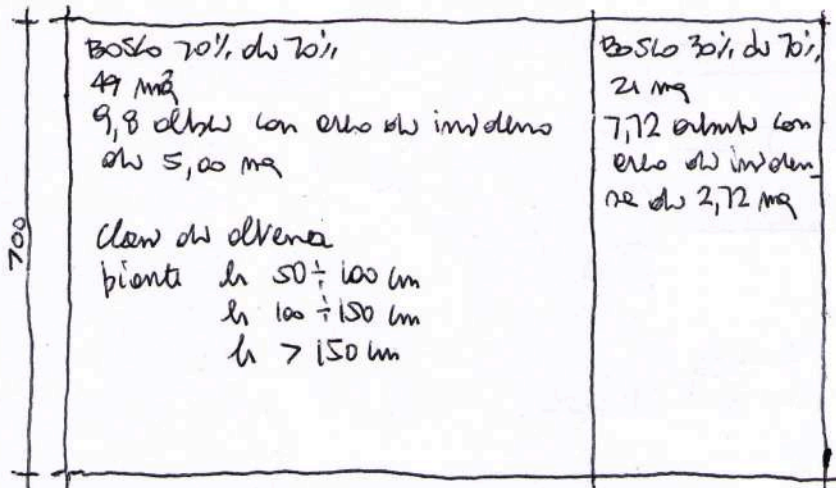 700
BOSCO 70% di 70%
49 mq
9,8 alberi con area di incidenza
di 5,00 mq
Classi di altezza
piante h 50÷100 cm
h 100÷150 cm
h > 150 cm
BOSCO 30% di 70%
21 mq
7,72 arbusti con
area di inciden_
za di 2,72 mq